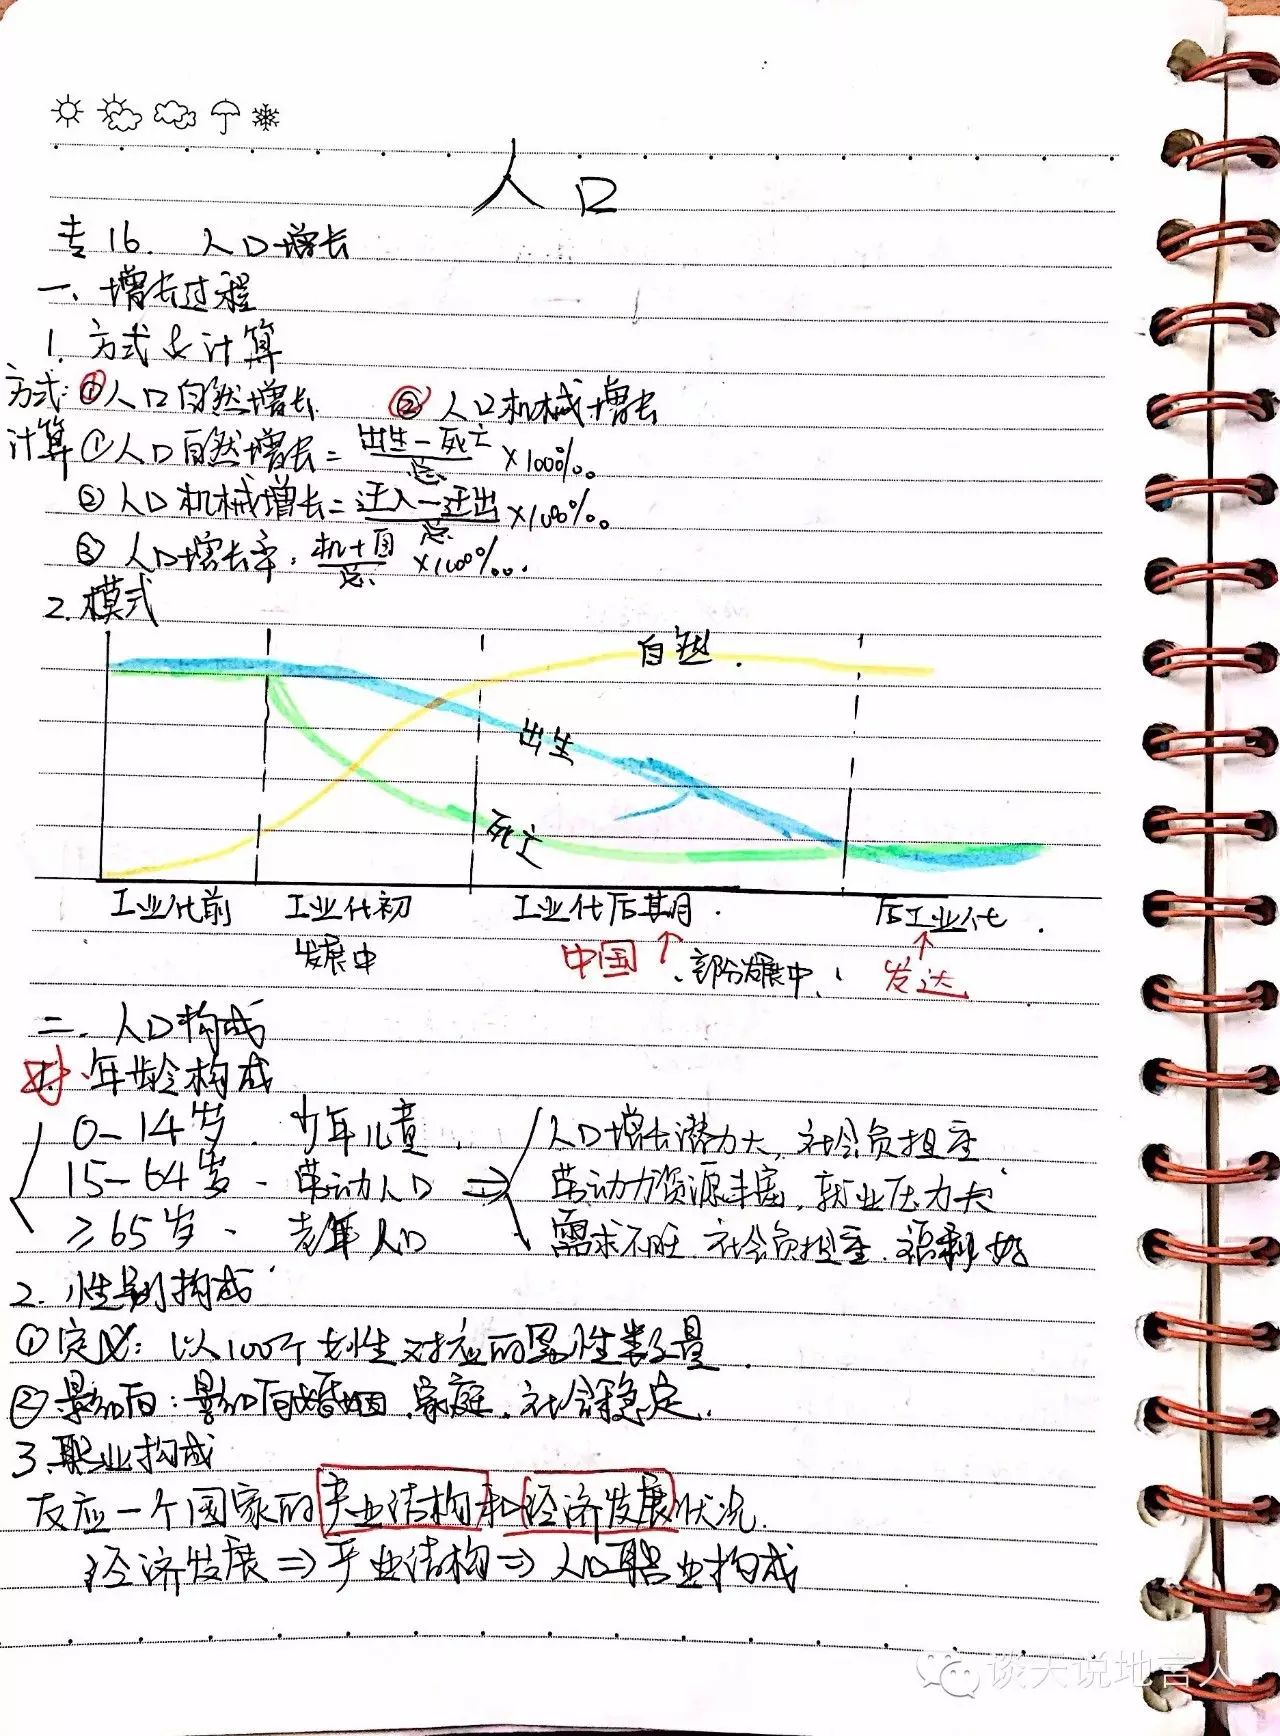 人口
专16. 人口增长
一、增长过程
1. 方式&计算
方式：①人口自然增长 ②人口机械增长
计算①人口自然增长=出生-死亡/总×1000‰
②人口机械增长=迁入-迁出/总×1000‰
③人口增长率：机+自/总×1000‰.
2.模式
自然.
出生
死亡
工业化前 工业化初 工业化后期. 后工业化.
发展中 中国↑、部分发展中、 ↑发达
二、人口构成
1.年龄构成
0-14岁. 少年儿童. 人口增长潜力大，社会负担重
15-64岁. 劳动人口 ⇒ 劳动力资源丰富，就业压力大
≥65岁. 老年人口 需求不旺.社会负担重.福利好
2. 性别构成
①定义：以100个女性对应的男性数量.
②影响：影响婚姻.家庭.社会稳定.
3.职业构成
反应一个国家的产业结构和经济发展状况.
经济发展⇒产业结构⇒人口职业构成
谈天说地言人